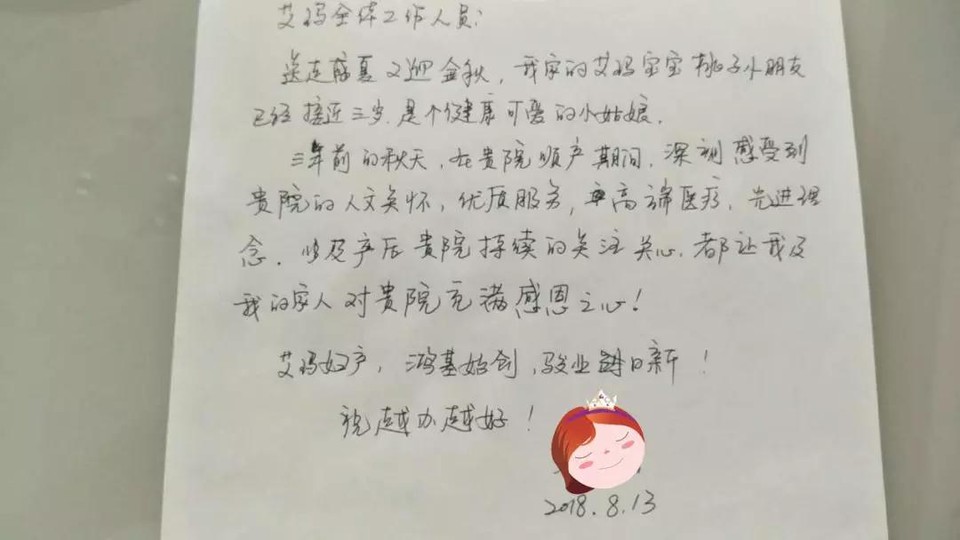 艾玛全体工作人员:
送走盛夏又迎金秋,我家的艾玛宝宝桃子小朋友
已经接近三岁.是个健康可爱的小姑娘.
三年前的秋天,在贵院顺产期间.深刻感受到
贵院的人文关怀,优质服务,高端医疗.先进理
念.以及产后贵院持续的关注关心.都让我及
我的家人对贵院充满感恩之心!
艾玛妇产,鸿基始创,骏业日新!
祝越办越好!
2018.8.13